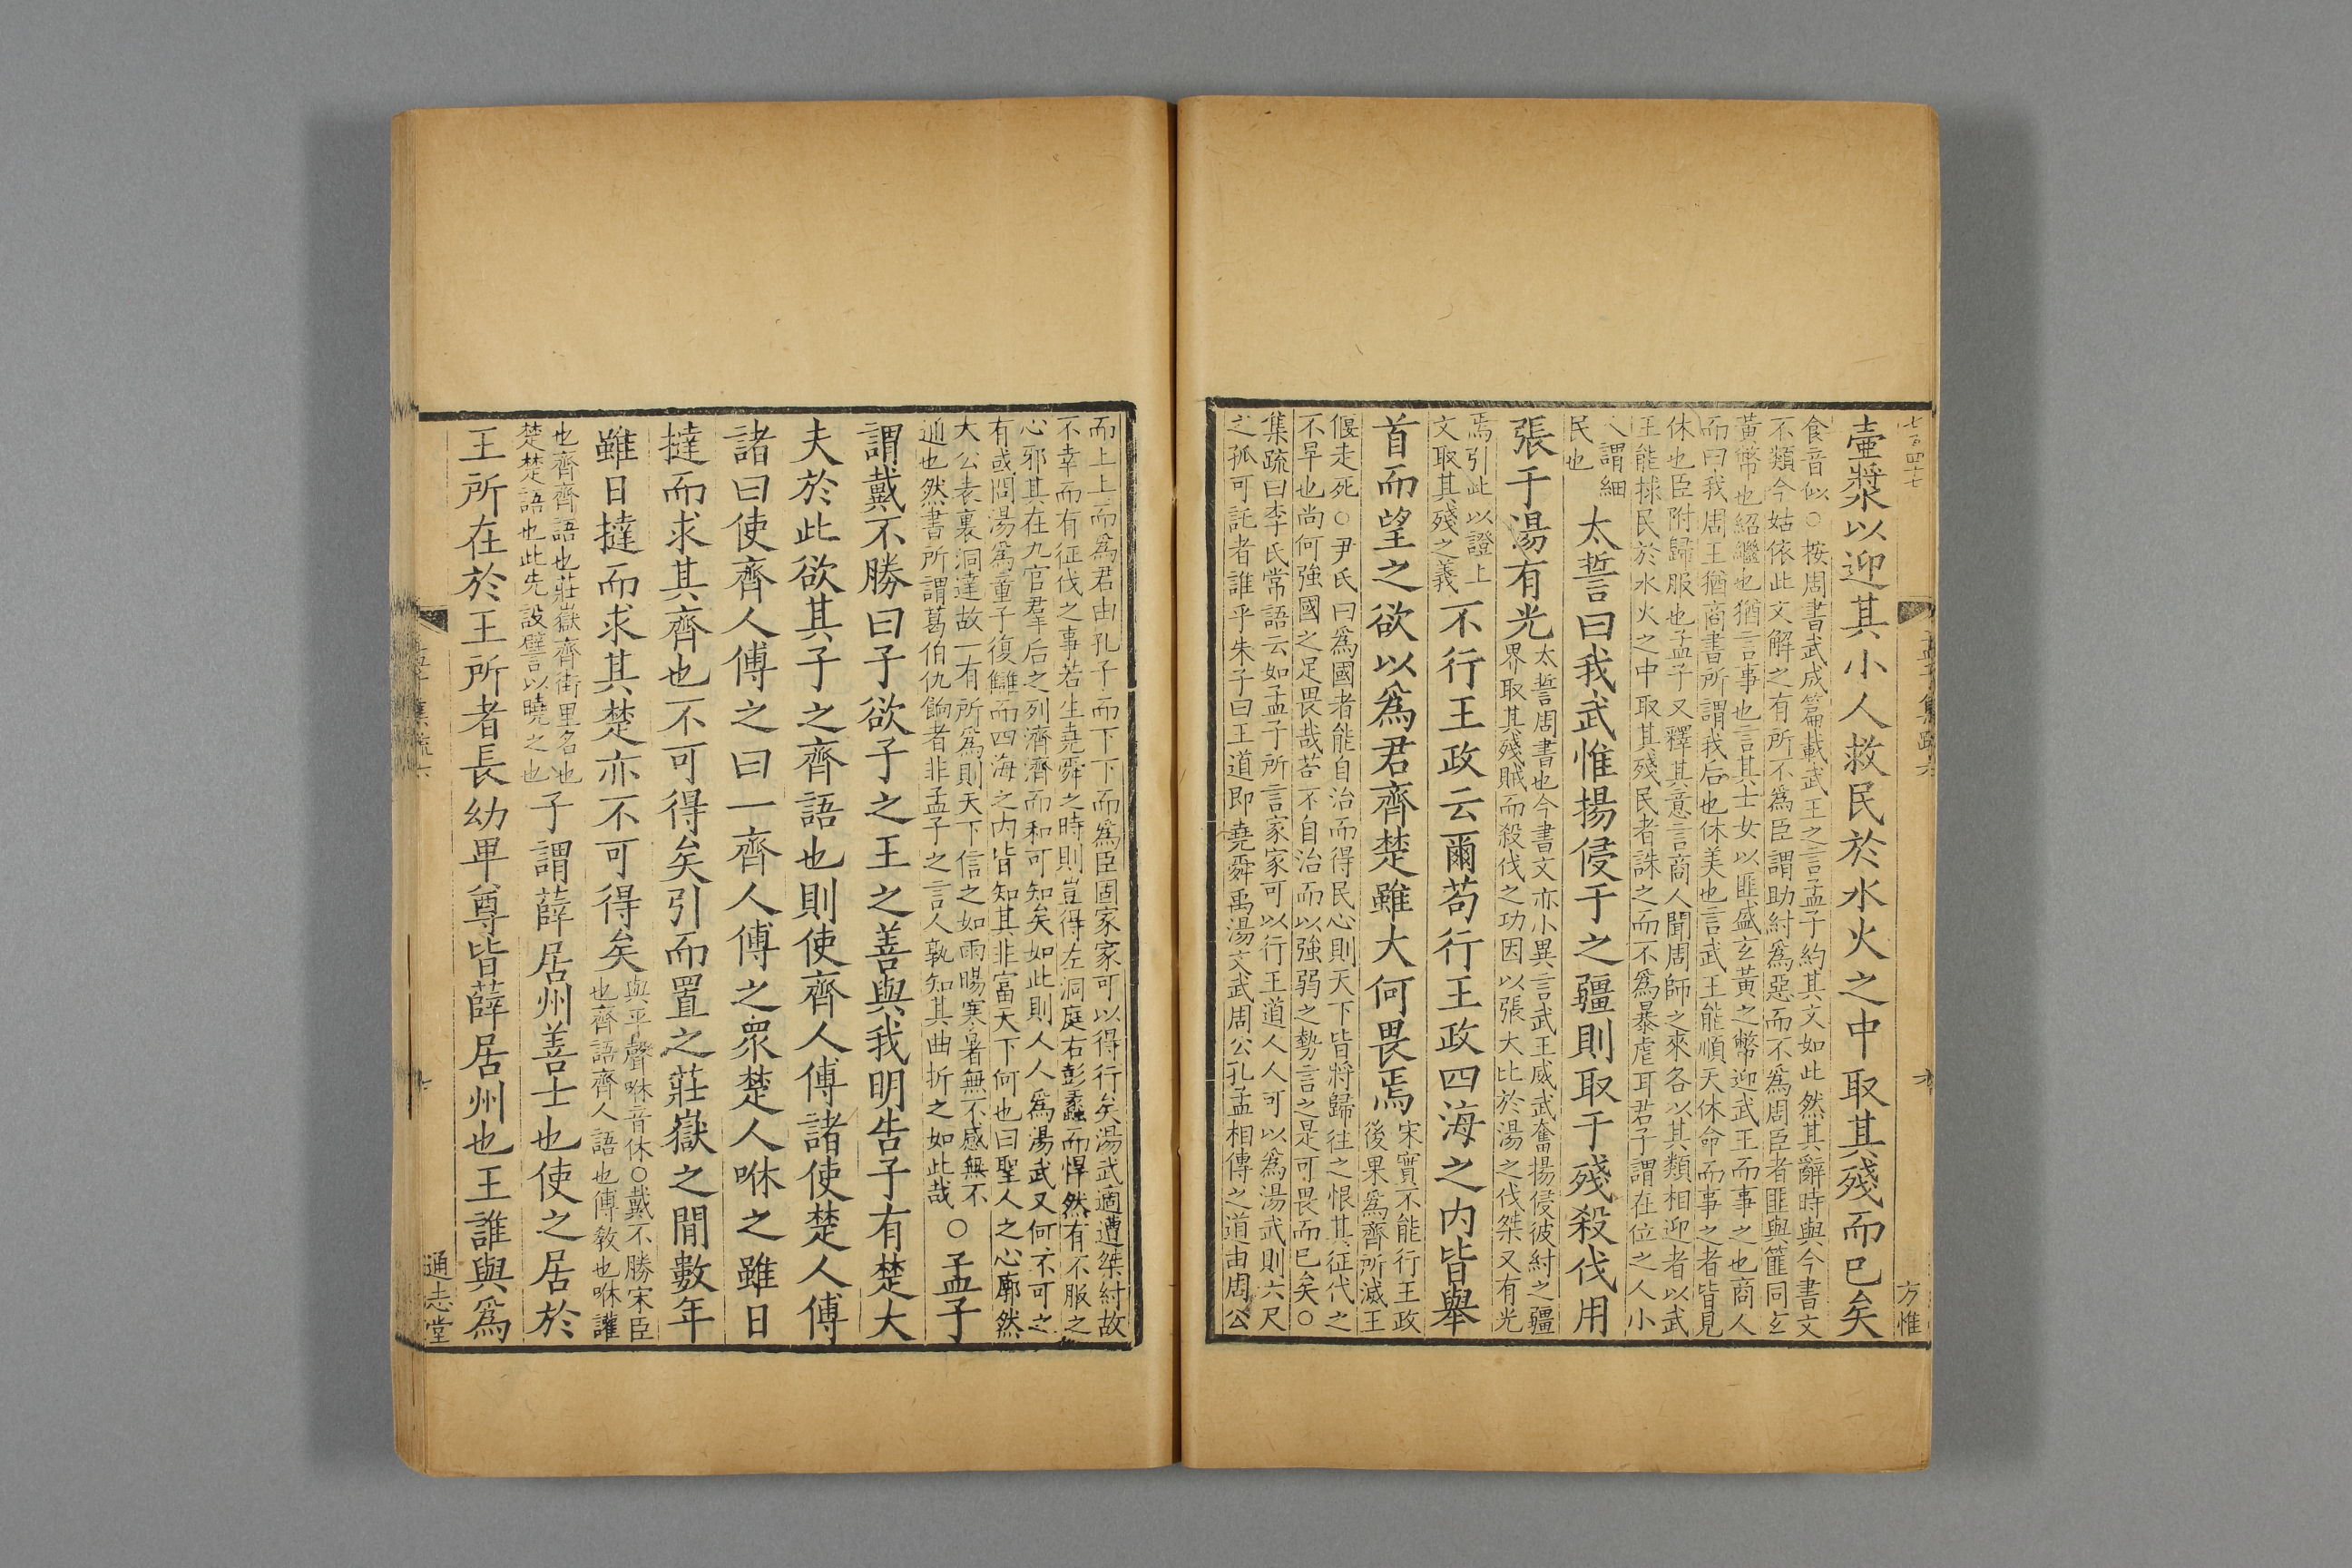 七百四十七
孟子集疏六
方惟
壷漿以迎其小人救民於水火之中取其殘而已矣
食音似○按周書武成篇載武王之言孟子約其文如此然其辭時與今書文
不類今姑依此文解之有所不爲臣謂助紂爲惡而不爲周臣者匪與篚同玄
黃幣也紹繼也猶言事也言其士女以匪盛玄黃之幣迎武王而事之也商人
而曰我周王猶商書所謂我后也休美也言武王能順天休命而事之者皆見
休也臣附歸服也孟子又釋其意言商人聞周師之來各以其類相迎者以武
王能捄民於水火之中取其殘民者誅之而不爲暴虐耳君子謂在位之人小
人謂細
民也
太誓曰我武惟揚侵于之疆則取于殘殺伐用
張于湯有光
太誓周書也今書文亦小異言武王威武奮揚侵彼紂之疆
界取其殘賊而殺伐之功因以張大比於湯之伐桀又有光
焉引此以證上
文取其殘之義
不行王政云爾苟行王政四海之内皆舉
首而望之欲以爲君齊楚雖大何畏焉
宋實不能行王政
後果爲齊所滅王
偃走死○尹氏曰爲國者能自治而得民心則天下皆將歸往之恨其征伐之
不早也尚何強國之足畏哉苟不自治而以強弱之勢言之是可畏而已矣○
集疏曰李氏常語云如孟子所言家家可以行王道人人可以爲湯武則六尺
之孤可託者誰乎朱子曰王道即堯舜禹湯文武周公孔孟相傳之道由周公
而上上而爲君由孔子而下下而爲臣固家家可以得行矣湯武適遭桀紂故
不幸而有征伐之事若生堯舜之時則豈得左洞庭右彭蠡而悍然有不服之
心邪其在九官羣后之列濟濟而和可知矣如此則人人爲湯武又何不可之
有或問湯爲童子復讎而四海之内皆知其非富天下何也曰聖人之心廓然
大公表裏洞達故一有所爲則天下信之如雨暘寒暑無不感無不
通也然書所謂葛伯仇餉者非孟子之言人孰知其曲折之如此哉
○孟子
謂戴不勝曰子欲子之王之善與我明告子有楚大
夫於此欲其子之齊語也則使齊人傅諸使楚人傅
諸曰使齊人傅之曰一齊人傅之衆楚人咻之雖日
撻而求其齊也不可得矣引而置之莊嶽之閒數年
雖日撻而求其楚亦不可得矣
與平聲咻音休○戴不勝宋臣
也齊語齊人語也傅教也咻讙
也齊齊語也莊嶽齊街里名也
楚楚語也此先設譬以曉之也
子謂薛居州善士也使之居於
王所在於王所者長幼卑尊皆薛居州也王誰與爲
通志堂